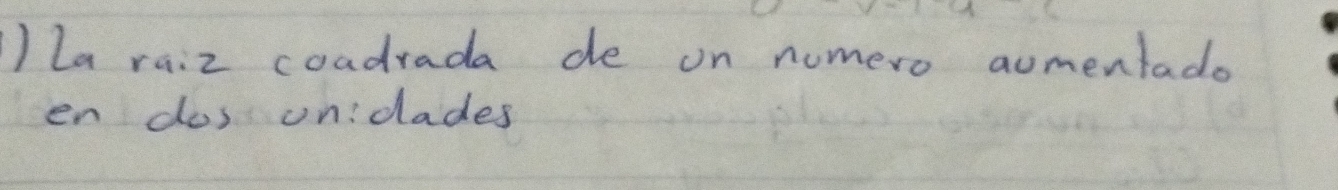 1) La raiz coadrada de un numero aumentado
en dos unidades